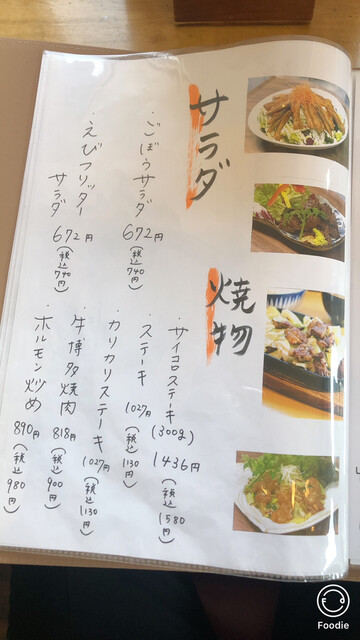 サラダ
・ごぼうサラダ
672円
(税込740円)
・えびフリッター
サラダ
672円
(税込740円)
焼物
・サイコロステーキ
(300g)
1436円
(税込1580円)
・ステーキ
1027円
(税込1130円)
・カリカリステーキ
1027円
(税込1130円)
・牛博多焼肉
818円
(税込900円)
・ホルモン炒め
890円
(税込980円)
Foodie